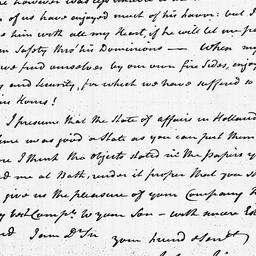 of us have enjoyed much of his favor: but I
him with all my Heart, if he will let me pa
in Safety thro' his Dominions — When
we find ourselves by our own fire Sides, enjoy
and Security, for which we have suffered to
I presume that the State of affairs in Holland
was as good a State as you can put them
I think the objects stated in the Papers y
me at Bath, render it proper that you
give us the pleasure of your Company
best Compts to your Son — with more Est
I am Dr Sir your friend & Servt